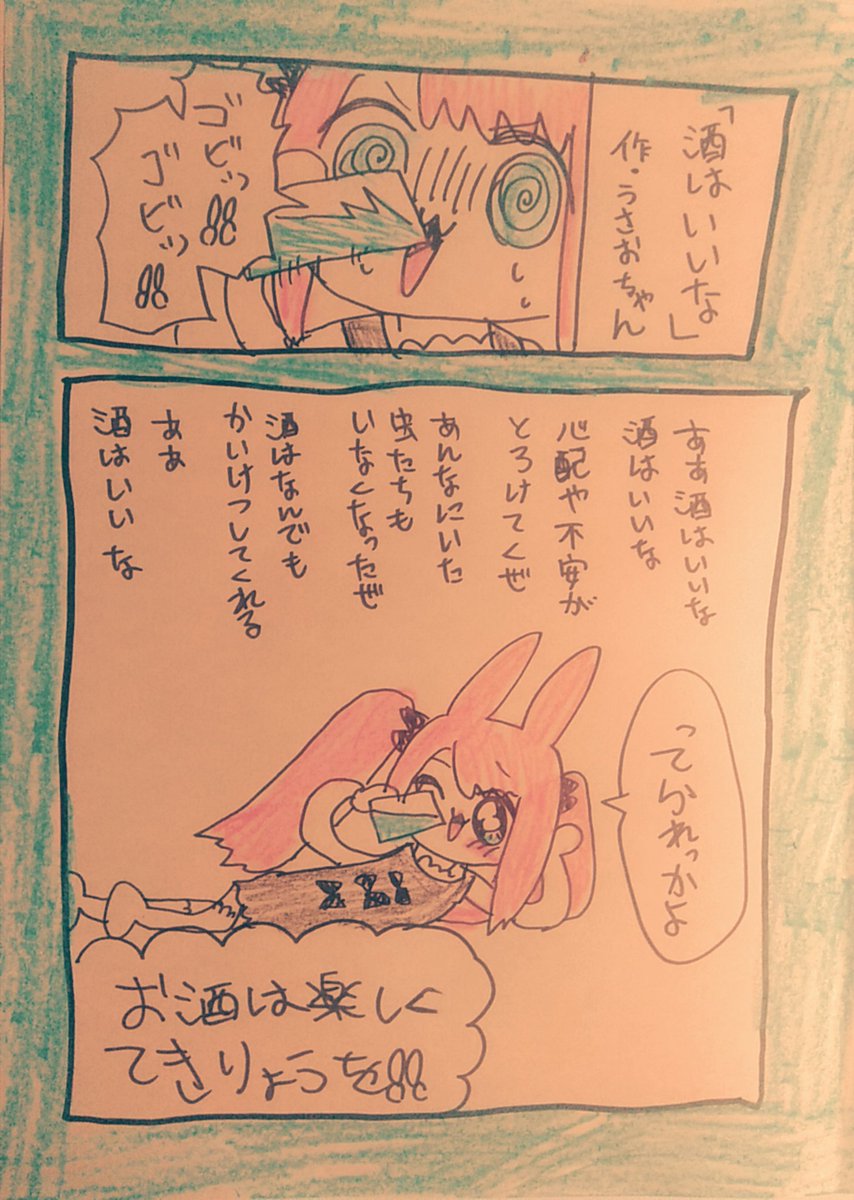 「酒はいいな」
作・うさおちゃん
ゴビッ!!
ゴビッ!!
ああ酒はいいな
酒はいいな
心配や不安が
とろけてくぜ
あんなにいた
虫たちも
いなくなったぜ
酒はなんでも
かいけつしてくれる
ああ
酒はいいな
ってられっかよ
お酒は楽しく
てきりょうを!!